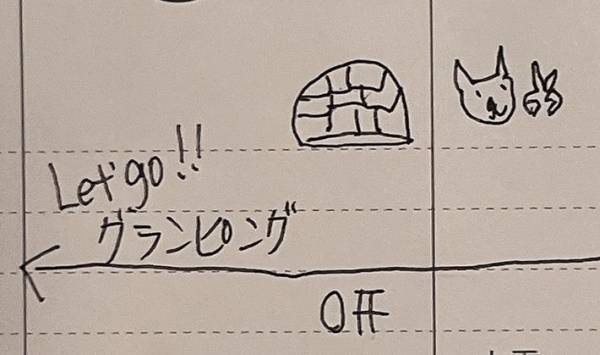 Let's go!!
グランピング
Off